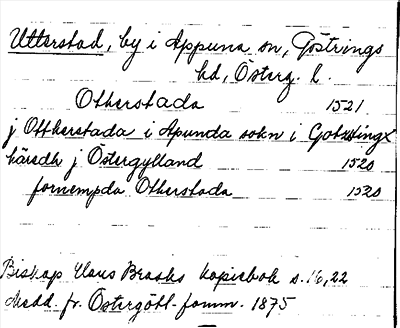 Utterstad, by i Appuna sn, Göstrings
hd, Österg. l.
Otherstada 1521
j Ottherstada i Apunda sokn i Gotxtingx
häredh j Östergylland 1520
fornempda Otherstada 1520
Biskop Hans Brasks kopiebok s. 16, 22
Medd. fr. Östergötl. fornm. 1875